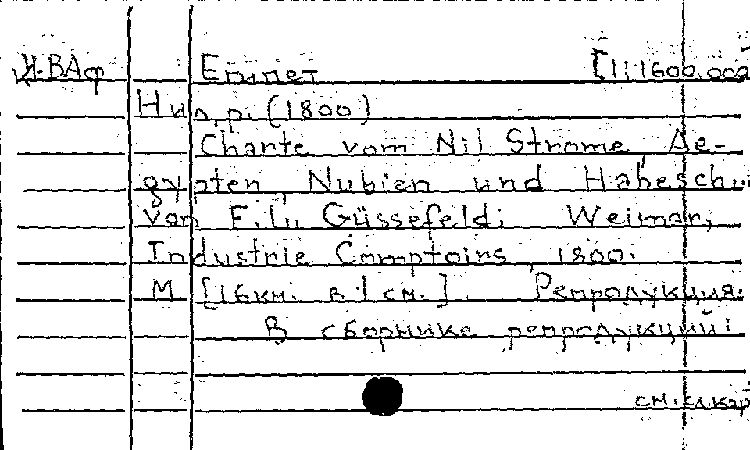 И.ВАф Египет [1:1600.000
Нил, р. (1800)
Charte vom Nil Strome Ae-
gypten, Nubien und Habesch..
von F.L. Güssefeld; Weimar,
Industrie Comptoirs, 1800.
М [16км. в 1 см.]. Репродукция.
В сборнике репродукций:
см. сл. кар